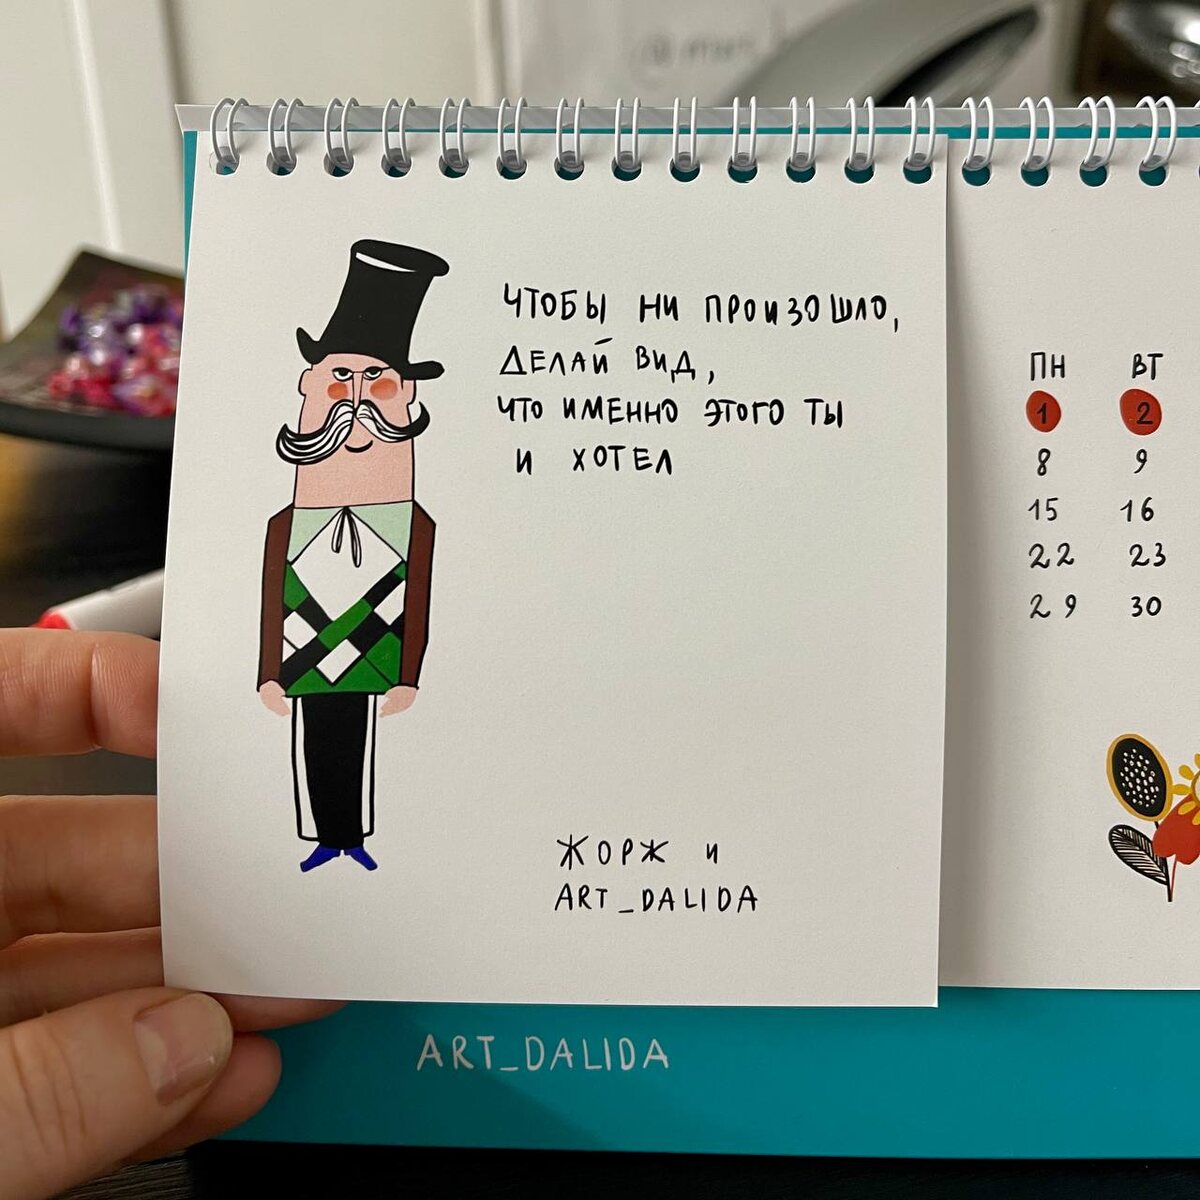 чтобы ни произошло,
делай вид,
что именно этого ты
и хотел
Жорж и
ART_DALIDA
ART_DALIDA
ПН ВТ
1 2
8 9
15 16
22 23
29 30